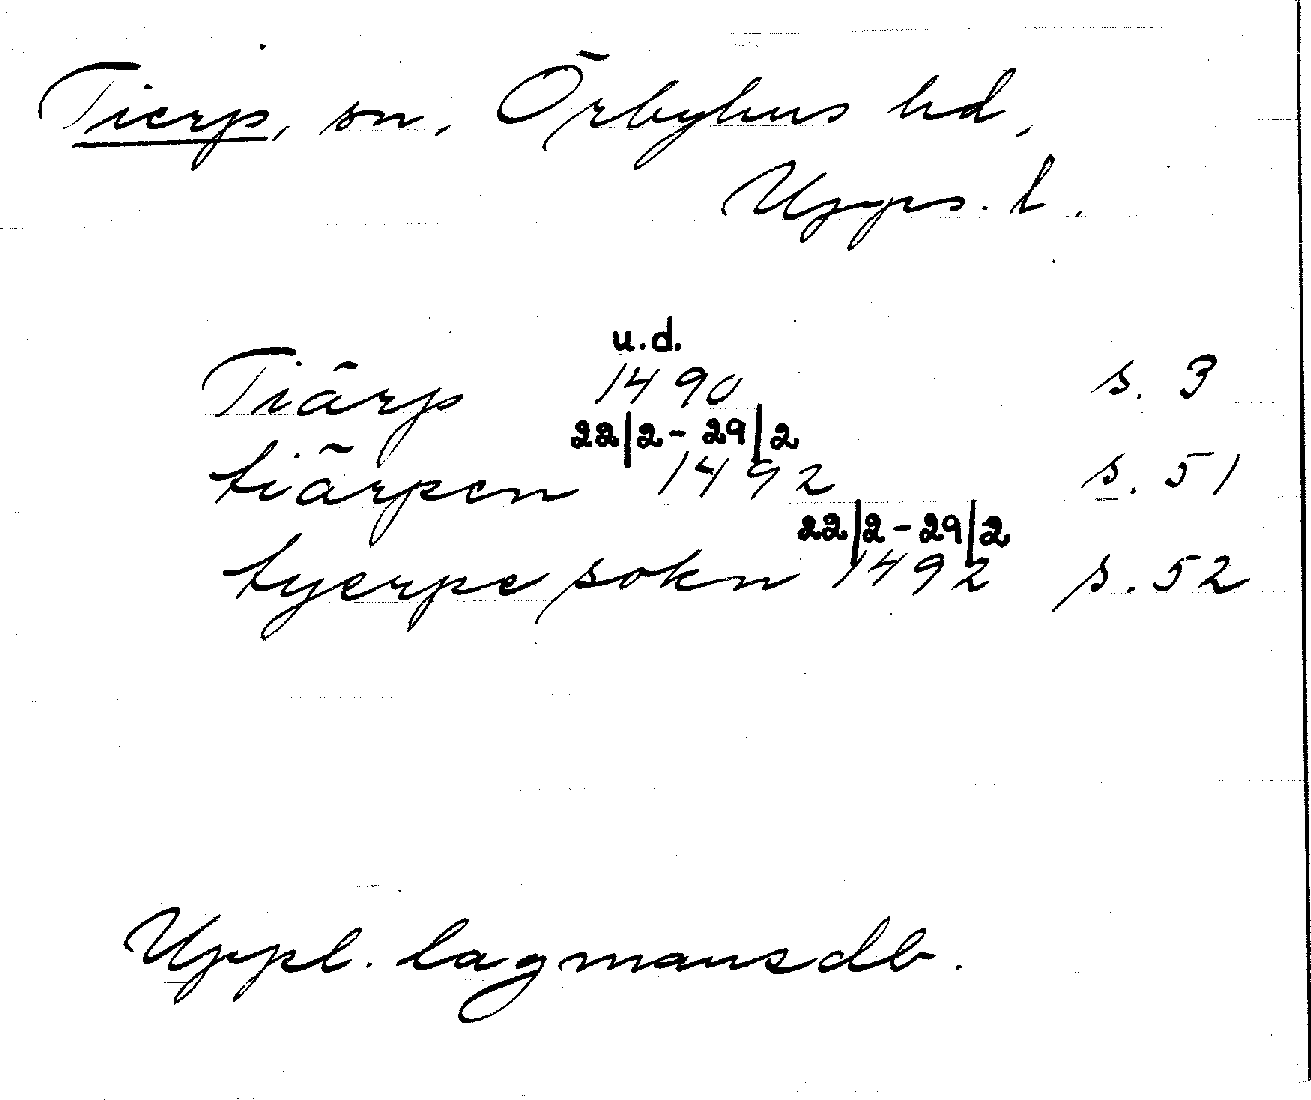 Tierp, sn, Örbyhus hd,
Upps. l.
u.d.
Tiärp 1490 s. 3
22/2 - 29/2
tiärpen 1492 s. 51
22/2 - 29/2
tyerpe sokn 1492 s. 52
Uppl. lagmansdb.